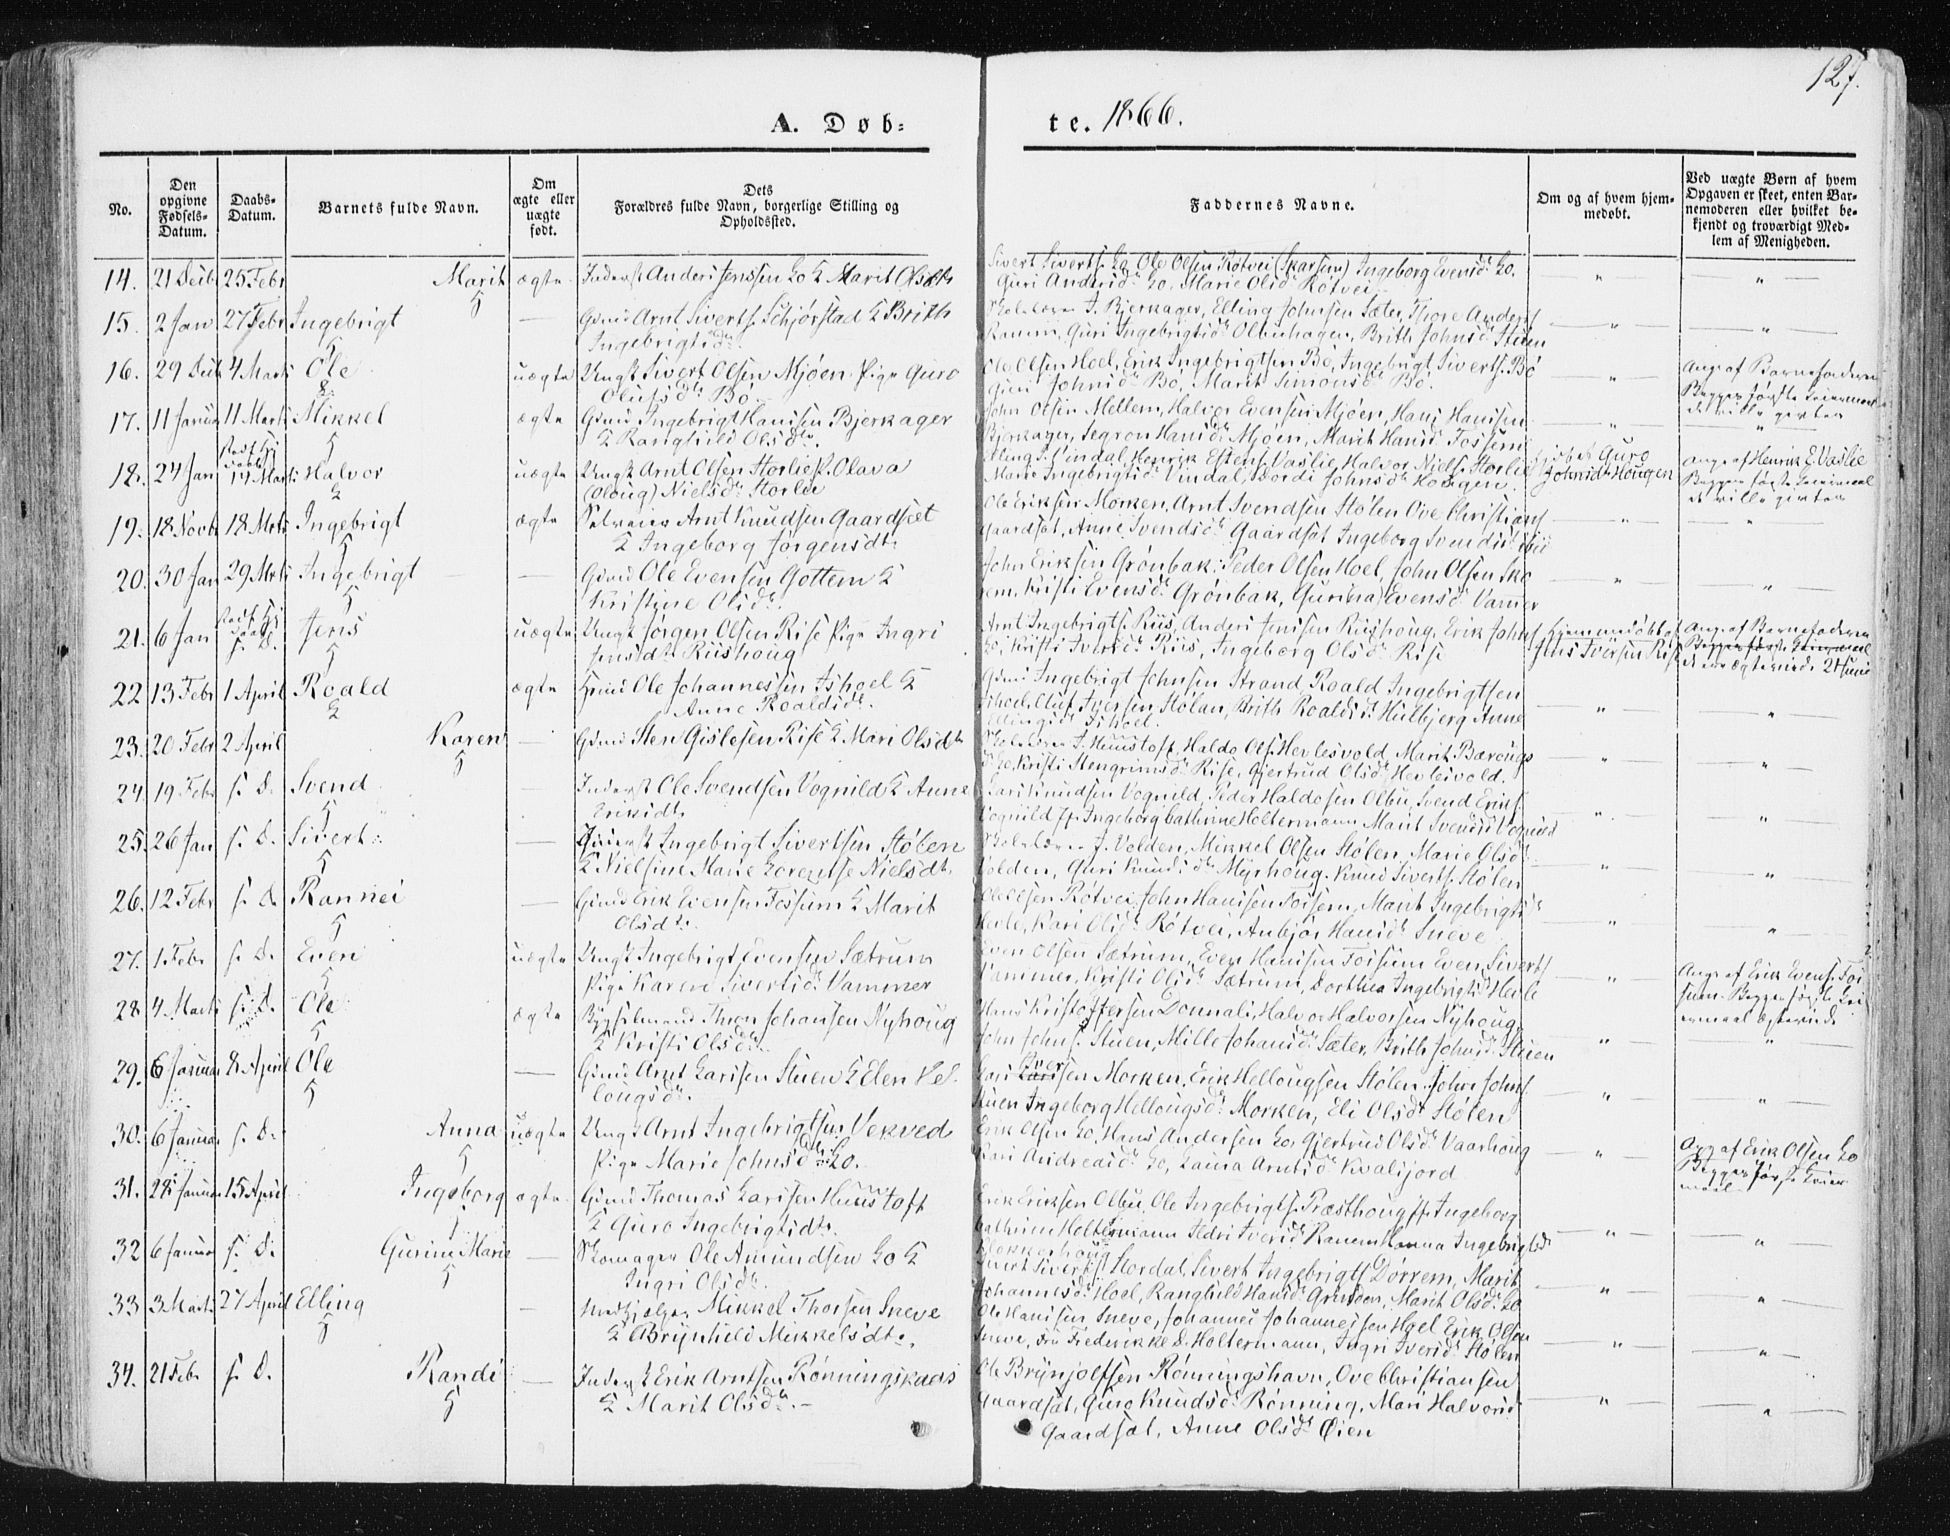 127.
A. Døb=
te. 1866.
No.
Den opgivne Fødsels-Datum.
Daabs-Datum.
Barnets fulde Navn.
Om ægte eller uægte født.
Dets Forældres fulde Navn, borgerlige Stilling og Opholdssted.
Faddernes Navne.
Om og af hvem hjemmedøbt.
Ved uægte Børn af hvem Opgaven er skeet, enten Barnemoderen eller hvilket bekjendt og troværdigt Medlem af Menigheden.
14. 21 Decb 25 Febr Marit ægte Inderst Anders Jenssen Lo & Marit Olsdtr
Sivert Siverts. Lo, Ole Olsen Røtvei (Skarsem) Ingeborg Evensdr Lo,
Guri Andersdr Lo, Marie Olsdr Røtvei
15. 2 Jan 27 Febr Ingebrigt — Gmd Arnt Siverts. Schjørstad & Brith
Ingebrigtsdr
J. Bjerkager, Elling Johnsen Sæter, Tore Anders
Ranem, Guri Ingebrigtsdr Olbuhagen, Brith Johnsdr Stuen
16. 29 Decb 4 Marts Ole uægte Ungk Sivert Olsen Mjøen Pige Guro
Olufsdr Bø
Ole Olsen Hoel, Erik Ingebrigtsen Bø, Ingebrigt Siverts. Bø
Guri Johnsdr Bø, Marit Simonsdr Bø.
Ang. af Barnefaderen
Begges første Leiermaal
de ville giftes
17. 11 Januar 11 Marts Mikkel ægte Gmd Ingebrigt Hansen Bjerkager
& Ranghild Olsdtr.
John Olsen Mellem, Halvor Evensen Mjøen, Hans Hansen
Bjerkager, Segron Hansdr Mjøen, Marit Hansdr Fossem
18. 24 Jan 14 Marts Halvor uægte Ungk Arnt Olsen Storlie P. Olava
(Oloug) Nielsdr Storlie
Vindal, Henrik Estens. Vaslie, Halvor Niels. Storlie
Marie Ingebrigtsdr Vindal, Johnsdr Hougen
Guro
Johnsdr Hougen
Ang. af Henrik E. Vaslie
Begges første Leiermaal
de ville giftes
19. 18 Novb 18 Mrts Ingebrigt ægte Selveier Arnt Knudsen Gaardsæt
& Ingeborg Jørgensdtr
Ole Eriksen Morken, Arnt Svendsen Stølen Ove Christians
Gaardsæt, Anne Svendsdr Gaardsæt Ingeborg Svendsdr
20. 30 Jan 29 Mrts Ingebrigt — Gmd Ole Evensen Gottem &
Kristine Olsdr.
John Eriksen Grönbak, Peder Olsen Hoel, John Olsen Sko
rem, Kristi Evensdr Grönbak, Gurina Evensdr Vammer
21. 6 Jan s. D. Jens uægte Ungk Jørgen Olsen Rise Pige Ingri
Jensdtr Riishoug
Arnt Ingebrigts. Riis, Anders Jensen Riishoug, Erik Johns
Lo, Kristi Iversdr Riis, Ingeborg Olsdr Rise
Hjemmedøbt af
Jens Iversen Rise
Ang. af Barnefaderen
22 13 Febr 1 April Roald ægte Gmd Ole Johannessen Ishoel &
Anne Roaldsdr.
Gmd Ingebrigt Johnsen Strand, Roald Ingebrigtsen
Ishoel, Oluf Iversen Stølan, Brith Roaldsdr Hulbjerg Anne
Ellingsdr Ishoel.
23. 20 Febr 2 April Karen — Gmd Sten Gislesen Rise & Mari Olsdtr
J. Huustoft, Haldo Ols. Hevlesvold, Marit Bærougs
Lo, Kristi Stengrimsdr Rise, Gjertrud Olsdr Hevlesvold.
24. 19 Febr s. D. Svend — Inderst Ole Svendsen Vognild & Anne
Eriksdtr
Lars Knudsen Vognild, Peder Haldosen Olbu, Svend Eriks.
Vognild, Ingeborg Cathrine Holtermann Marit Svendsdr Vognild
25. 26 Jan s. D. Sivert — Ingebrigt Sivertsen Stølen
& Nielsine Marie Lorentse Nielsdtr.
J. Volden, Mikkel Olsen Stølen, Marie Olsdr
Volden, Guri Knudsdr Myrhoug. Knud Siverts. Stølen
26. 12 Febr s. D. Rannei — Gmd Erik Evensen Fossum & Marit
Olsdtr.
Ole Olsen Røtvei, John Hansen Fossem, Marit Ingebrigtsdr
Hevle, Kari Olsdr Røtvei, Anbjør Hansdr Sneve
27. 1 Febr s. D. Even uægte Ungk Ingebrigt Evensen Sætrum
Pige Karen Sivertsdr Vammer
Even Olsen Sætrum, Even Hansen Fossum Even Siverts
Vammer, Kristi Olsdr Sætrum, Dorthea Ingebrigtsdr Hevle
Ang. af Erik Evens. Fos
sum. Begges første Lei
ermaal
28 4 Marts s. D. Ole ægte Bygselmand Thron Johansen Nyhoug
& Kristi Olsdr.
Hans Kristoffersen Donnali, Halvor Halvorsen Nyhoug,
John Johns. Stuen, Mille Johansdr Sæter, Brith Johnsdr Stuen
29. 6 Januar 8 April Ole — Gmd Arnt Larsen Stuen & Elen Hel
lougsdr.
Lars Iversen Morken, Erik Hellougsen Stølen, John Johns.
Stuen Ingeborg Hellougsdr Morken, Eli Olsdr Stølen
30. 6 Januar s. D. Anna uægte Ungk Arnt Ingebrigtsen Vekved
Pige Marie Johnsdr Lo.
Erik Olsen Lo, Hans Andersen Lo, Gjertrud Olsdr Vaarhoug
Kari Andreasdr Lo, Laura Arntsdr Kvalsjord
Opg af Erik Olsen Lo
Begges første Leier
maal
31. 28 Januar 15 April Ingeborg ægte Gmd Thomas Larsen Huustoft
& Guro Ingebrigtsdtr.
Erik Eriksen Olbu, Ole Ingebrigts. Præsthoug, Ingeborg
Cathrine Holtermann Ildri Iversdr Ranem Hanna Ingebrigtsdr
Klokkerhoug
32 6 Januar s. D. Gurine Marie — Skomager Ole Amundsen Lo &
Ingri Olsdr.
Sivert Siverts. Stordal, Sivert Ingebrigts Dørrem, Marit
Johannesdr Hoel, Ranghild Hansdr Grinden, Marit Olsdr Lo
33 3 Marts 27 April Elling — Mikkel Thorsen Sneve
& Brynhild Mikkelsdtr.
Ole Hansen Sneve, Johannes Johannessen Hoel Erik Olsen
Sneve, Fru Frederikke D. Holtermann, Ingri Iversdr Stølen
34. 21 Febr s. D. Randi — Inderst Erik Arntsen Rønningskaas
& Marit Olsdr.
Ole Brynjolfsen Rønningshavn, Ove Christiansen
Gaardsæt, Guro Knudsdr Rønning, Mari Halvorsdr
Gaardsæt, Anne Olsdr Øien